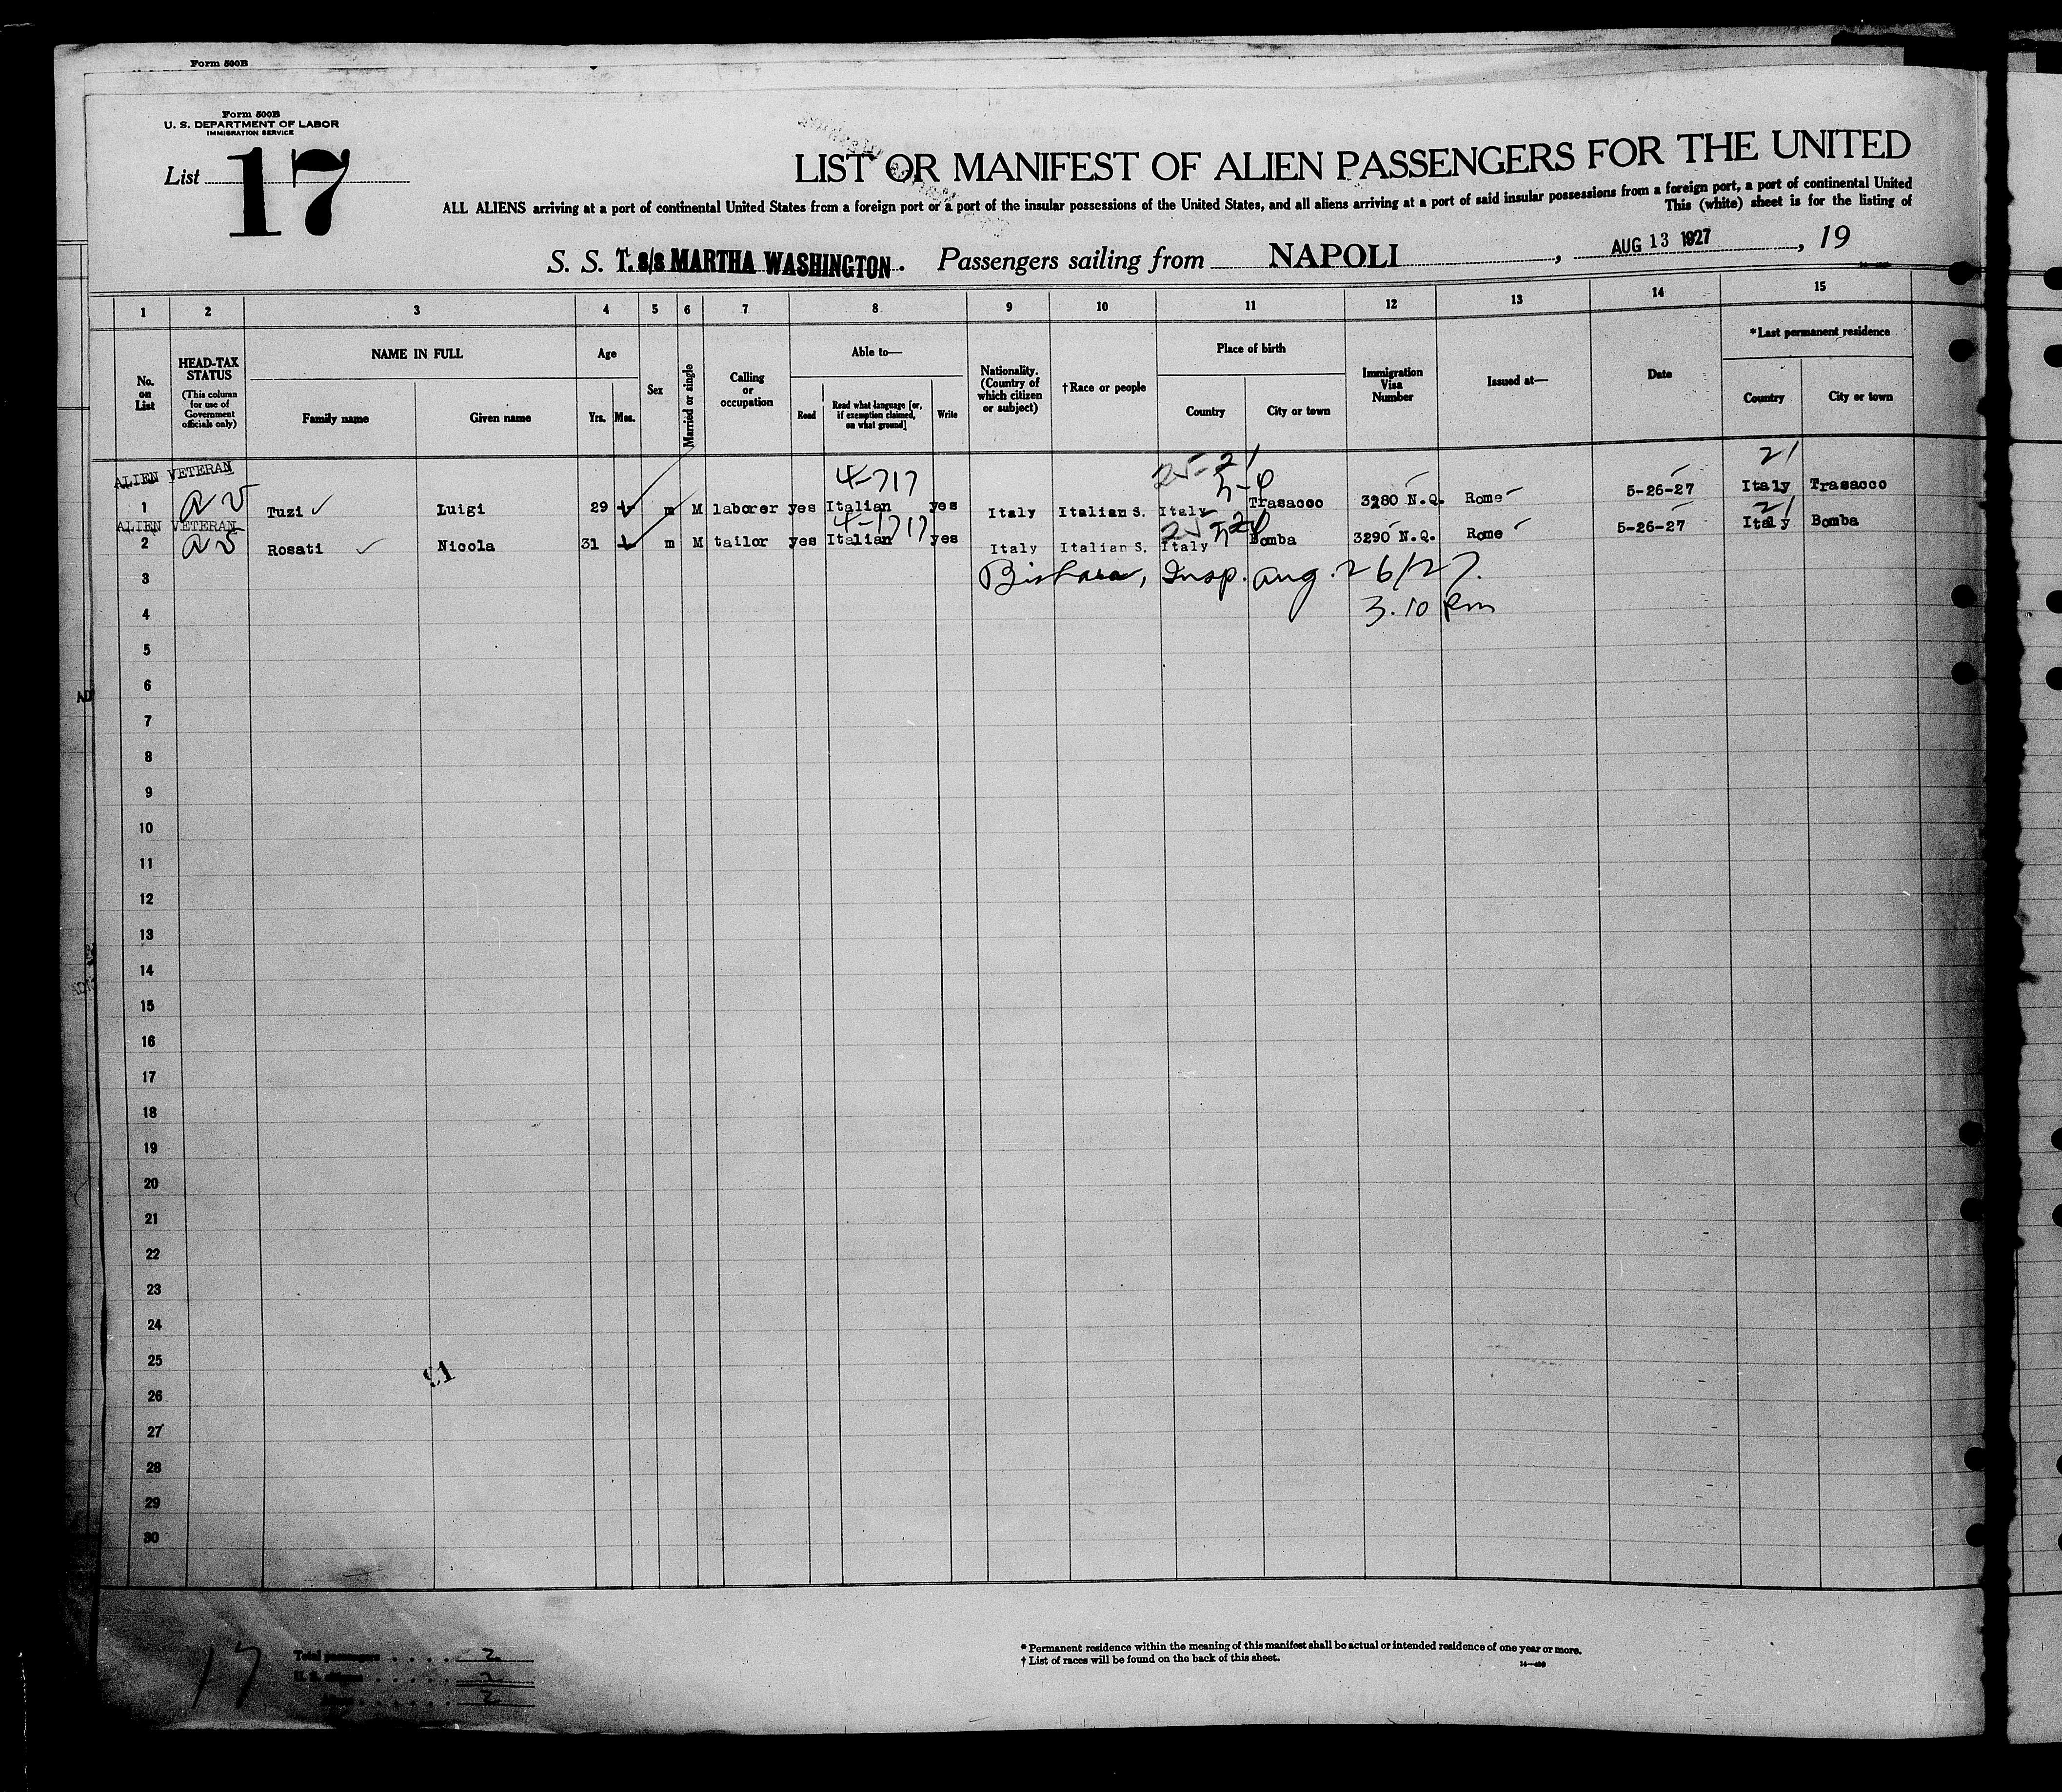 Form 500B
Form 500B
U. S. DEPARTMENT OF LABOR
IMMIGRATION SERVICE
List 17
LIST OR MANIFEST OF ALIEN PASSENGERS FOR THE UNITED
ALL ALIENS arriving at a port of continental United States from a foreign port or a port of the insular possessions of the United States, and all aliens arriving at a port of said insular possessions from a foreign port, a port of continental United
This (white) sheet is for the listing of
S. S. T. s/s MARTHA WASHINGTON. Passengers sailing from NAPOLI, AUG 13 1927, 19
1 2 3 4 5 6 7 8 9 10 11 12 13 14 15
No. on List
HEAD-TAX STATUS
(This column for use of Government officials only)
NAME IN FULL
Family name
Given name
Age
Yrs.
Mos.
Sex
Married or single
Calling or occupation
Able to—
Read
Read what language [or, if exemption claimed, on what ground]
Write
Nationality. (Country of which citizen or subject)
†Race or people
Place of birth
Country
City or town
Immigration Visa Number
Issued at—
Date
*Last permanent residence
Country
City or town
ALIEN VETERAN
4-717 25-21 21
1 av Tuzi Luigi 29 m M laborer yes Italian yes Italy Italian S. Italy Trasacco 3280 N.Q. Rome 5-26-27 Italy Trasacco
ALIEN VETERAN
4-1717 21
2 av Rosati Nicola 31 m M tailor yes Italian yes Italy Italian S. Italy Bomba 3290 N.Q. Rome 5-26-27 Italy Bomba
3 Insp. Aug. 26/27.
4 3.10 pm
5
6
7
8
9
10
11
12
13
14
15
16
17
18
19
20
21
22
23
24
25
26
27
28
29
30
17
Total passengers . . . . 2
U. S. citizens
Aliens . . . . . . 2
* Permanent residence within the meaning of this manifest shall be actual or intended residence of one year or more.
† List of races will be found on the back of this sheet.